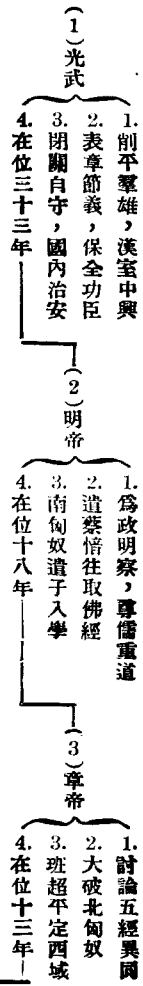 (1)光武
1.削平羣雄，漢室中興
2.表章節義，保全功臣
3.閉關自守，國內治安
4.在位三十三年
(2)明帝
1.爲政明察，尊儒重道
2.遣蔡愔往取佛經
3.南匈奴遣子入學
4.在位十八年
(3)章帝
1.討論五經異同
2.大破北匈奴
3.班超平定西域
4.在位十三年